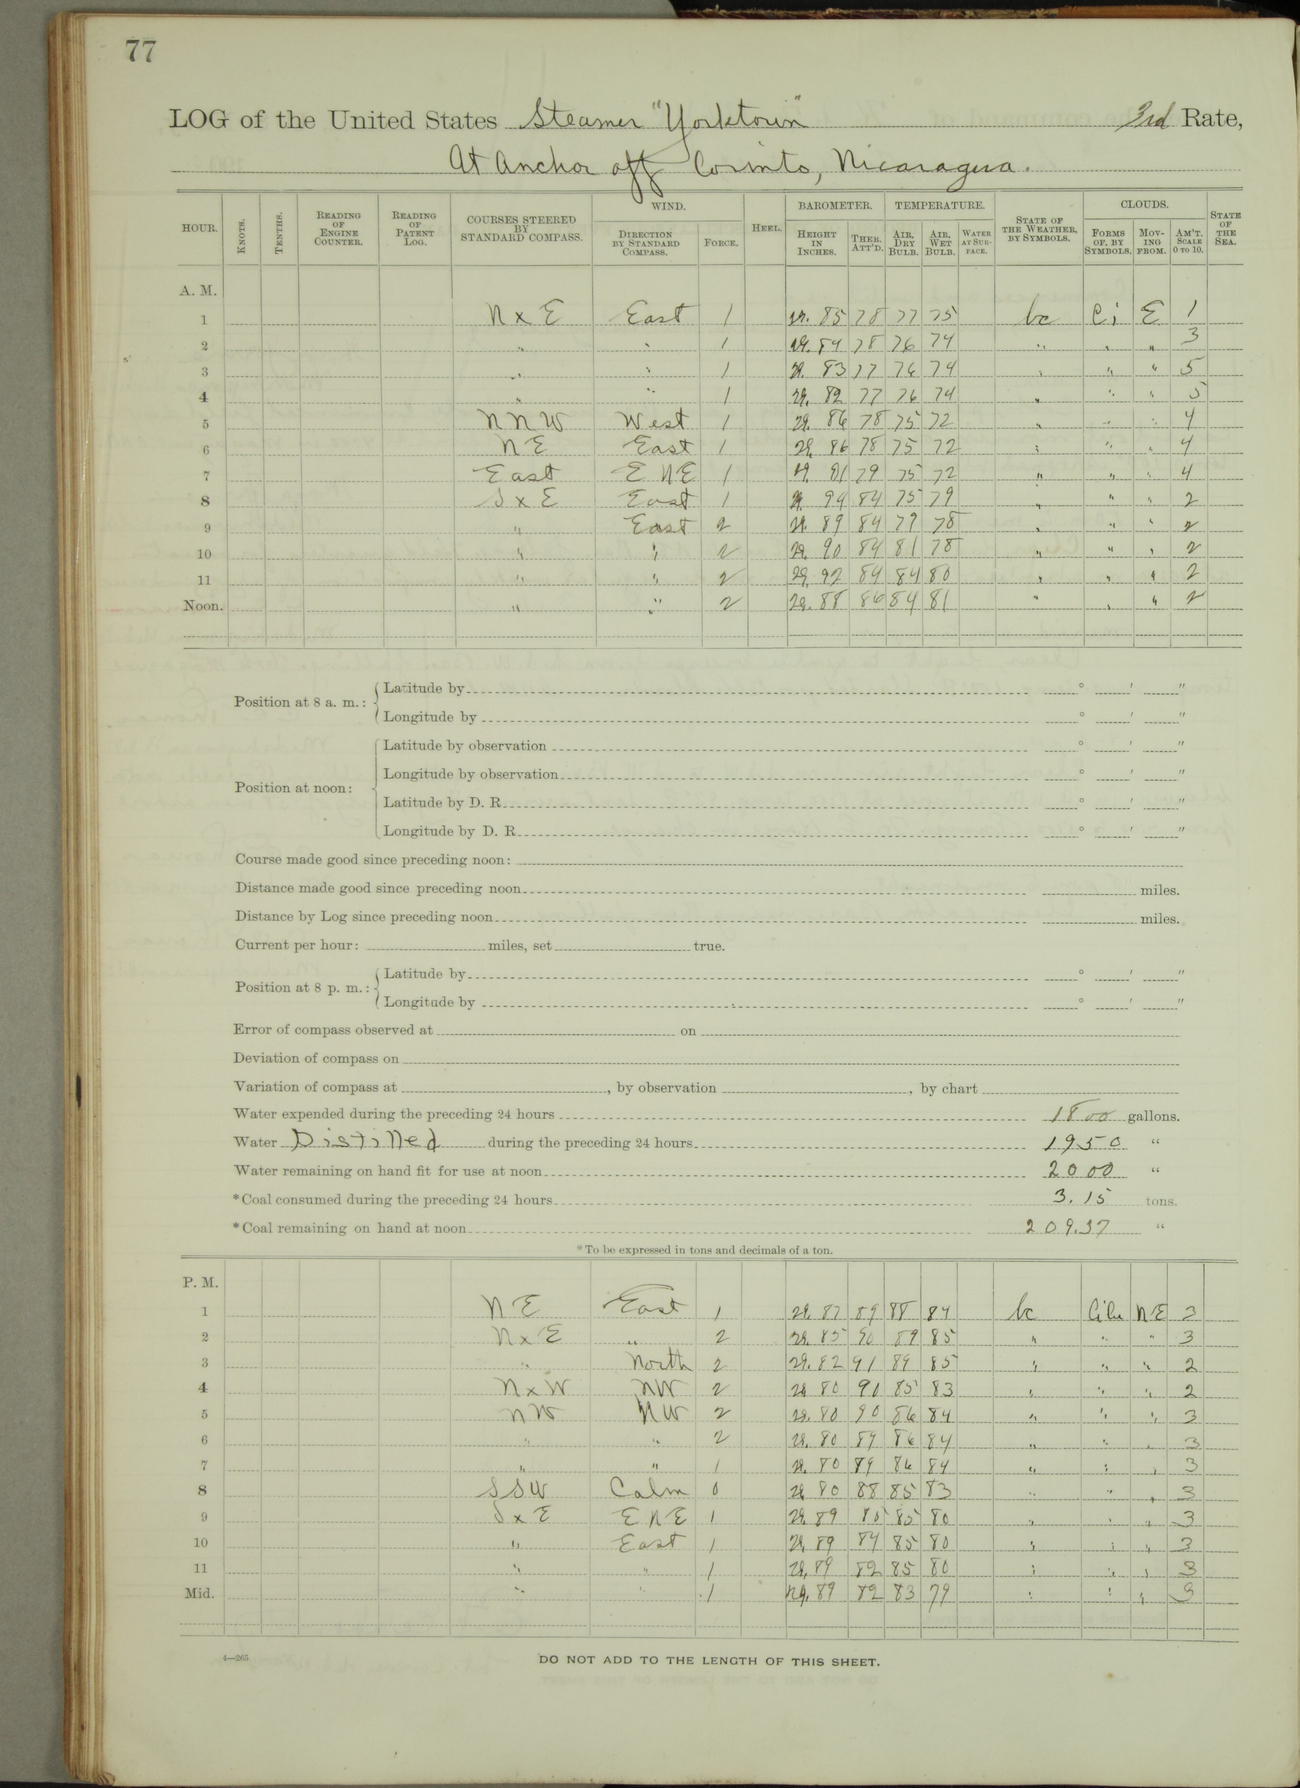 77
LOG of the United States Steamer "Yorktown" 3rd Rate,
At Anchor off Corinto, Nicaragua.
HOUR. KNOTS. TENTHS. READING OF ENGINE COUNTER. READING OF PATENT LOG. COURSES STEERED BY STANDARD COMPASS. WIND. DIRECTION BY STANDARD COMPASS. FORCE. HEEL. BAROMETER. HEIGHT IN INCHES. THER. ATT'D. TEMPERATURE. AIR, DRY BULB. AIR, WET BULB. WATER AT SURFACE. STATE OF THE WEATHER, BY SYMBOLS. CLOUDS. FORMS OF, BY SYMBOLS. MOVING FROM. AM'T. SCALE 0 TO 10. STATE OF THE SEA.
A. M.
1 N x E East 1 29.85 78 77 75 bc Ci E 1
2 " " 1 29.84 78 76 74 " " " 3
3 " " 1 29.83 77 76 74 " " " 5
4 " " 1 29.82 77 76 74 " " " 5
5 NNW West 1 29.86 78 75 72 " " " 4
6 NE East 1 29.86 78 75 72 " " " 4
7 East ENE 1 29.81 79 75 72 " " " 4
8 S x E East 1 29.94 84 75 79 " " " 2
9 " East 2 29.89 84 79 78 " " " 2
10 " " 2 29.90 84 81 78 " " " 2
11 " " 2 29.92 84 84 80 " " " 2
Noon. " " 2 29.88 86 84 81 " " " 2
Position at 8 a. m.: Latitude by ° ′ ″
Longitude by ° ′ ″
Position at noon: Latitude by observation ° ′ ″
Longitude by observation ° ′ ″
Latitude by D. R. ° ′ ″
Longitude by D. R. ° ′ ″
Course made good since preceding noon:
Distance made good since preceding noon miles.
Distance by Log since preceding noon miles.
Current per hour: miles, set true.
Position at 8 p. m.: Latitude by ° ′ ″
Longitude by ° ′ ″
Error of compass observed at on
Deviation of compass on
Variation of compass at , by observation , by chart
Water expended during the preceding 24 hours 1800 gallons.
Water Distilled during the preceding 24 hours 1950 "
Water remaining on hand fit for use at noon 2000 "
*Coal consumed during the preceding 24 hours 3.15 tons.
*Coal remaining on hand at noon 209.37 "
*To be expressed in tons and decimals of a ton.
P. M.
1 NE East 1 29.87 89 88 84 bc NE 3
2 N x E " 2 29.85 90 89 85 " " " 3
3 " North 2 29.82 91 89 85 " " " 2
4 N x W NW 2 29.80 90 85 83 " " " 2
5 NW NW 2 29.80 90 86 84 " " " 3
6 " " 2 29.80 89 86 84 " " " 3
7 " " 1 29.80 89 86 84 " " " 3
8 SSW Calm 0 29.80 88 85 83 " " " 3
9 S x E ENE 1 29.89 85 85 80 " " " 3
10 " East 1 29.89 84 85 80 " " " 3
11 " " 1 29.89 82 85 80 " " " 3
Mid. " " 1 29.89 82 83 79 " " " 3
4—265 DO NOT ADD TO THE LENGTH OF THIS SHEET.